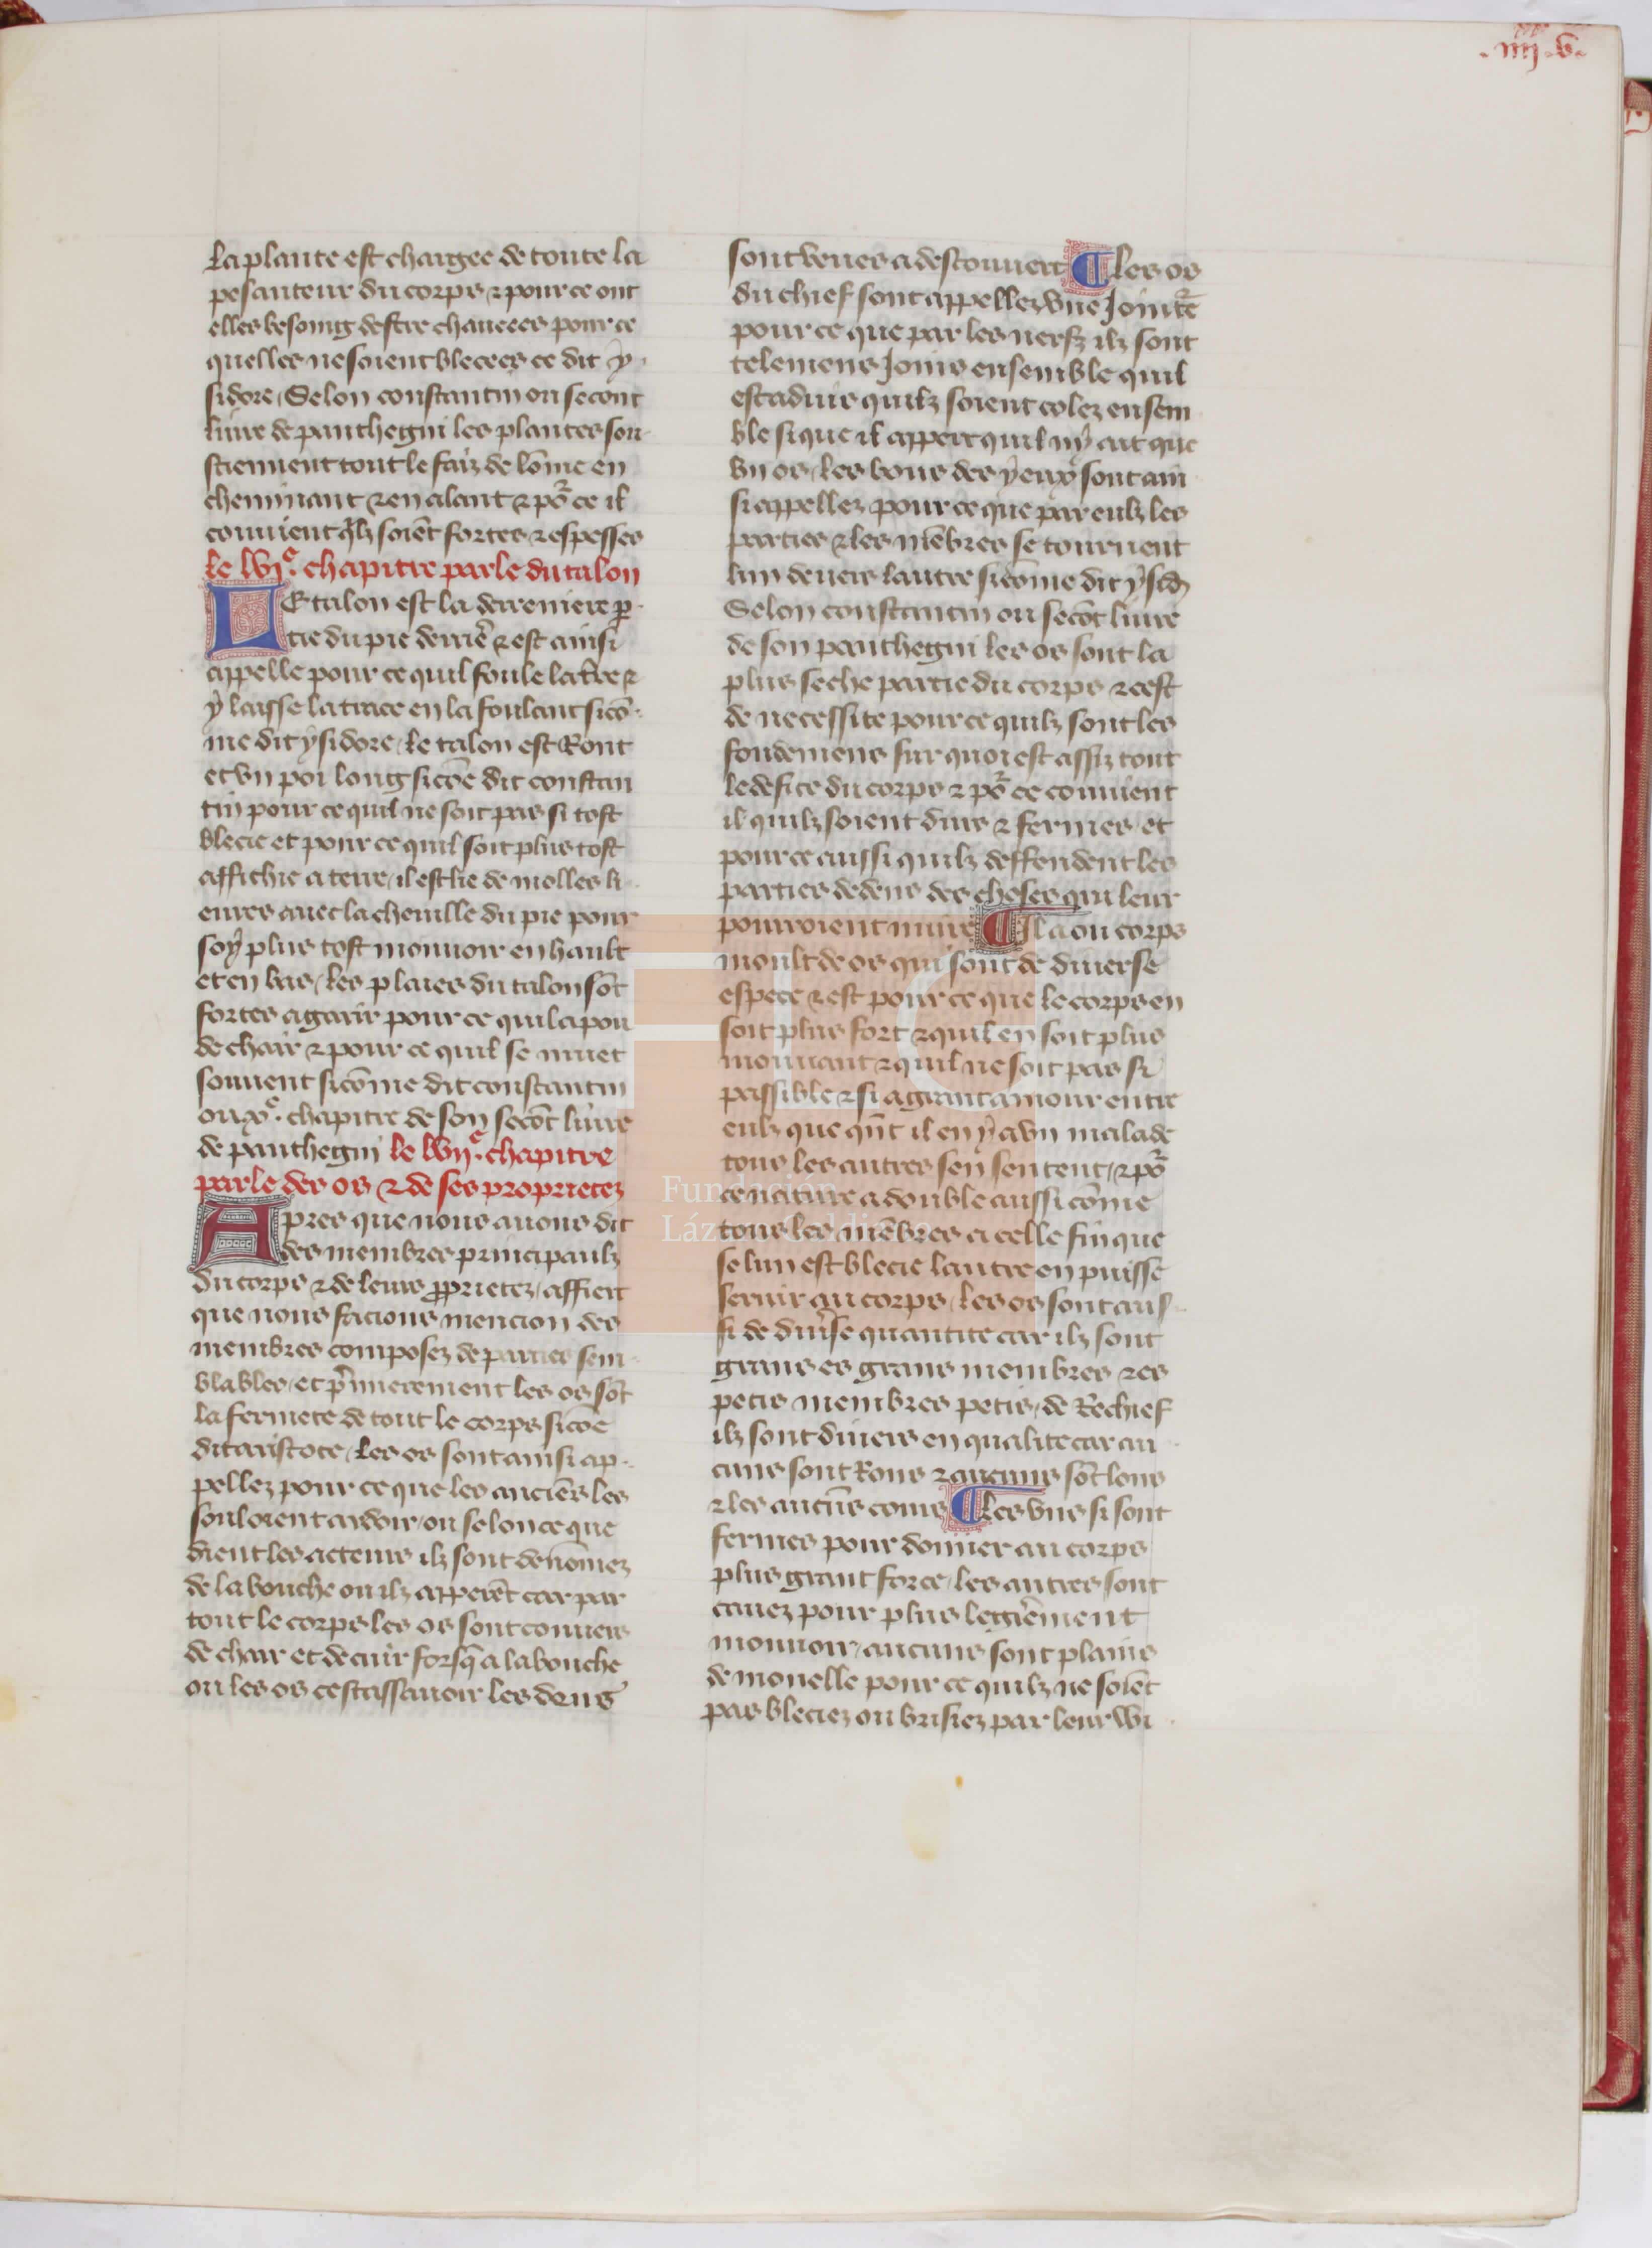 .iiij.v.
la plante est chargee de toute la
pesanteur du corps ⁊ pource ont
elles besoing destre chaucees pource
quelles ne soient blecees ce dit y
sidore Selon constantin ou secont
liure de panthegni les plantes sou
stiennent tout le faiz de lōme en
cheminant ⁊ en alant ⁊ poᷣ ce il
conuient qlz soiēt fortes ⁊ espesses
le lvjᵉ. chapitre parle du talon
Le talon est la derreniere ꝑ
tie du pie derrie͛ ⁊ est ainsi
appelle pour ce quil foule la t͛re ⁊
y laisse la trace en la foulant sicō
me dit ysidore / le talon est Ront
et vn poi long sicōe dit constan
tin pour ce quil ne soit pas si tost
blecie et pour ce quil soit plus tost
affichie a terre / il est lie de molles li
eures auec la cheuille du pie pour
soy plus tost mouuoir en hault
et en bas / les plaies du talon sōt
fortes a garir pour ce quil a pou
de chair ⁊ pour ce quil se muet
souuent sicōme dit constantin
ou xxᵉ. chapitre de son secōt liure
de panthegni le lvijᵉ. chapitre
parle des os ⁊ de ses proprietez
Apres que nous auons dit
des membres principaulz
du corps ⁊ de leurs ꝓprietez / affiert
que nous facions mencion des
membres composez de parties sem
blables / et p͛mierement les os sōt
la fermete de tout le corps sicōe
dit aristote / les os sont ainsi ap
pellez pour ce que les anciēs les
souloient ardoir / ou selon ce que
dient les acteurs ilz sont denōmez
de la bouche ou ilz apperēt car par
tout le corps les os sont couuers
de chair et de cuir forsq̄ a la bouche
ou les os cest assauoir les dens
sont veues a descouuert ¶ les os
du chief sont appellez vne Joinctᷣe
pour ce que par les nerfz ilz sont
telemens Joins ensemble quil
est aduis quilz soient colez ensem
ble si que il appert quil ny ait que
vn os / les bous des yeux sont ain
si appellez pour ce que par eulz les
parties ⁊ les mēbres se tournent
lun deuers lautre sicōme dit ysid͛
Selon constantin ou secōt liure
de son panthegni les os sont la
plus seche partie du corps ⁊ cest
de necessite pour ce quilz sont les
fondemens sur quoi est assiz tout
ledefice du corps ⁊ poᷣ ce conuient
il quilz soient durs ⁊ fermes / et
pour ce aussi quilz deffendent les
parties dedens des choses qui leur
pourroient nuire ¶ Il a ou corps
moult de os qui sont de diuerse
espece ⁊ est pour ce que le corps en
soit plus fort ⁊ quil en soit plus
mouuant ⁊ quil ne soit pas si
passible ⁊ si a grant amour entre
eulz que qn̄t il en y a vn malade
tous les autres sen sentent / ⁊ poᷣ
ce nature a double aussi cōme
tous les mēbres a celle fin que
se lun est blecie lautre en puisse
seruir au corps / les os sont aus
si de diu͛se quantite car ilz sont
grans es grans membres ⁊ es
petis membres petis / de Rechief
ilz sont diuers en qualite car au
cuns sont Rons ⁊ aucuns sōt lons
⁊ les aucūs corns ¶ les vns si sont
fermes pour donner au corps
plus grant force / les autres sont
cauez pour plus legie͛ment
mouuoir / aucuns sont plains
de mouelle pour ce quilz ne soiēt
pas bleciez ou brisiez par leur vi
Fundación
Lázaro Galdiano